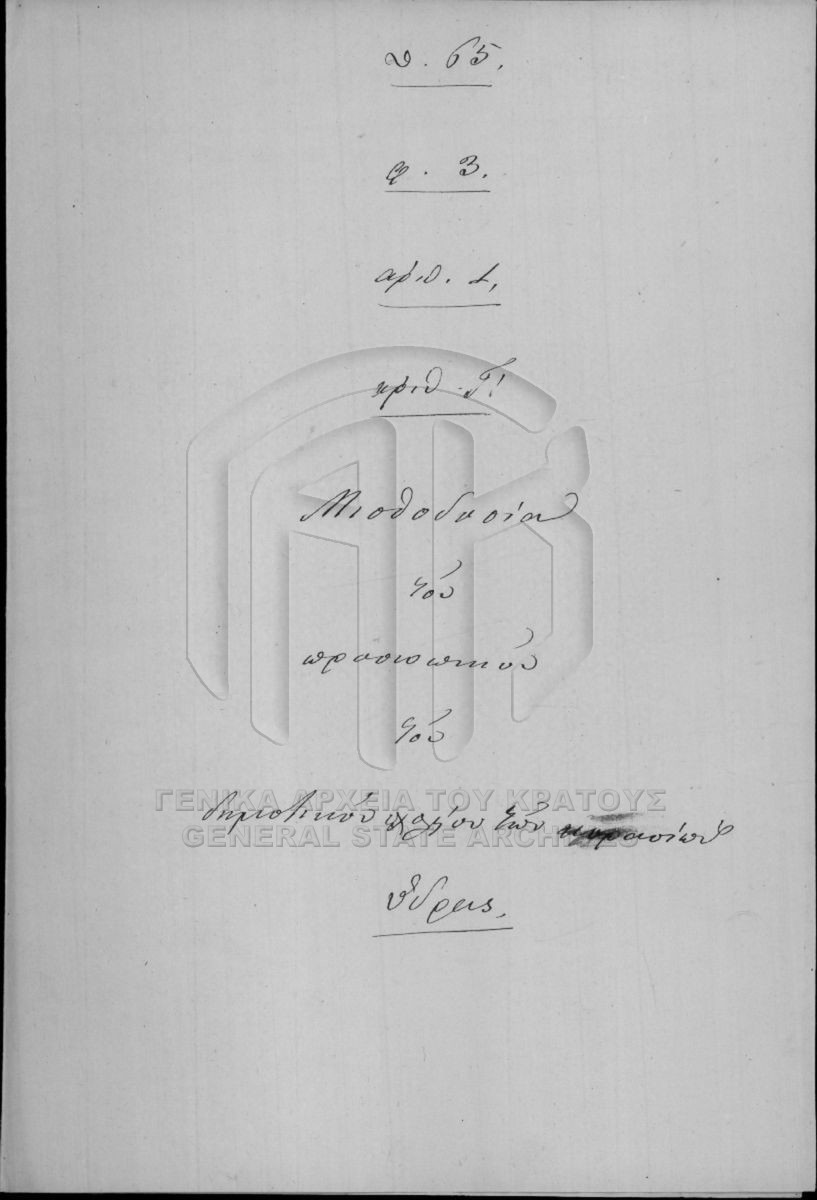 θ. 65.
φ. 3.
ἀριθ. 1.
ἀριθ. Γ'
Μισθοδοσία
τοῦ
προσωπικοῦ
τοῦ
δημοτικοῦ σχολείου τῶν κορασίων
Ὕδρας.
ΓΕΝΙΚΑ ΑΡΧΕΙΑ ΤΟΥ ΚΡΑΤΟΥΣ
GENERAL STATE ARCHIVES